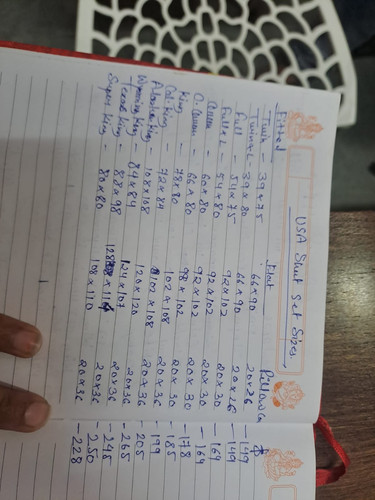 USA Sheet Set Sizes,
Fitted Flat Pillow $
Twin - 39x75 66x90 20x26 - 149
Twin x L - 39x80 66x90 20x26 - 149
Full - 54x75 92x102 20x30 - 169
Full x L - 54x80 92x102 20x30 - 169
Queen - 60x80 92x102 20x30 - 178
O.Queen - 66x80 98x102 20x30 - 185
King - 78x80 102x108 20x36 - 199
Cal.King - 72x84 102x108 20x36 - 205
Alaskan King - 108x108 120x120 20x36 - 265
Wyoming King - 84x84 124x107 20x36 - 245
Texas King - 88x98 128 x 114 20x36 - 250
Super King - 80x80 108x110 20x36 - 228